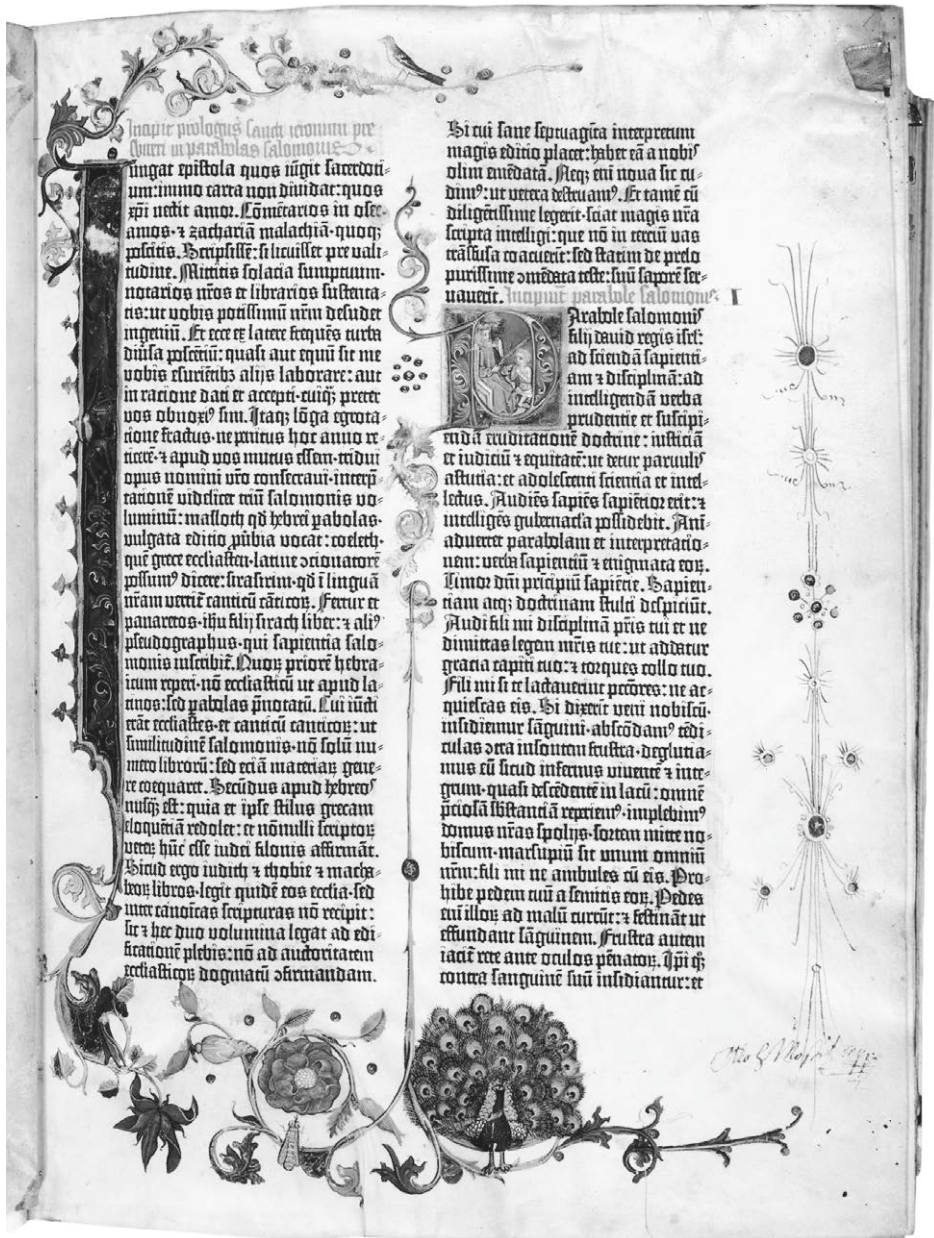 Incipit prologus sancti ieronimi pre⸗
sbiteri in parabolas salomonis
Iungat epistola quos iūgit sacerdoti⸗
um: immo carta non diuidat: quos
xp̄i nectit amor. Cōmētarios in osee·
amos· ⁊ zachariā malachiā· quoqꝫ
poscitis. Scripsissē: si licuisset pre vali⸗
tudine. Mittitis solacia sumptuum·
notarios nr̄os et librarios sustenta⸗
tis: ut vobis potissimū nr̄m desudet
ingeniū. Et ecce ex latere frequēs turba
diūsa poscētiū: quasi aut equū sit me
vobis esuriētibꝫ alijs laborare: aut
in ratione dati et accepti· cuiqꝫ preter
vos obnoxiꝰ sim. Itaqꝫ lōga egrota⸗
tione fractus· ne penitus hoc anno re⸗
ticerē· ⁊ apud vos mutus essem· tridui
opus nomini vr̄o consecraui· interp̄⸗
tationē videlicet triū salomonis vo⸗
luminū: masloth qd̄ hebrei ꝑabolas·
vulgata editio ꝓūbia vocat: coeleth·
quē grece ecclesiasten· latine ↄcionatorē
possumꝰ dicere: sirasirim· qd̄ ī linguā
nr̄am vertit̄ canticū cāticoꝝ. Fertur et
panaretos· ihu filij sirach liber: ⁊ aliꝰ
pseudographus· qui sapientia salo⸗
monis inscribit̄. Quoꝝ priorē hebra⸗
icum reperi· nō ecclesiasticū ut apud la⸗
tinos: sed ꝑabolas p̄notatū. Cui iūcti
erāt ecclesiastes· et canticū canticoꝝ: ut
similitudinē salomonis· nō solū nu⸗
mero librorū: sed eciā materiaꝝ gene⸗
re coequaret. Secūdus apud hebreoˢ
nusqꝫ est: quia et ipse stilus grecam
eloquētiā redolet: et nōnulli scriptoꝝ
veteꝝ hūc esse iudei filonis affirmāt.
Sicud ergo iudith ⁊ thobie ⁊ macha⸗
beoꝝ libros· legit quidē eos ecclesia· sed
inter canoīcas scripturas nō recipit:
sic ⁊ hec duo volumina legat ad edi⸗
ficationē plebis: nō ad auctoritatem
ecclesiasticoꝝ dogmatū ↄfirmandam.
Si cui sane septuagīta interpretum
magis editio placet: habet eā a nobiˢ
olim emēdatā. Neqꝫ em̄ noua sic cu⸗
dimꝰ: ut vetera destruamꝰ. Et tamē cū
diligētissime legerit· sciat magis nr̄a
scripta intelligi: que nō in terciū vas
trāsfusa coacuerīt: sed statim de prelo
purissime ↄmēdata teste: suū saporē ser⸗
uauerīt. Incipiunt parabole salomonis I
Parabole salomoniˢ
filij dauid regis isr̄l:
ad sciendā sapienti⸗
am ⁊ disciplinā: ad
intelligendā verba
prudentie et suscipi⸗
endā eruditationē doctrine: iusticiā
et iudiciū ⁊ equitatē: ut detur paruuliˢ
astutia: et adolescenti scientia et intel⸗
lectus. Audiēs sapiēs sapiētior erit: ⁊
intelligēs gubernacl'a possidebit. Anī⸗
aduertet parabolam et interpretatio⸗
nem: verba sapientiū ⁊ enigmata eoꝝ.
Timor dn̄i pricipiū sapiētie. Sapien⸗
tiam atqꝫ doctrinam stulti despiciūt.
Audi fili mi disciplinā pr̄is tui et ne
dimittas legem mr̄is tue: ut addatur
gratia capiti tuo: ⁊ torques collo tuo.
Fili mi si te lactauerīt pctōres: ne ac⸗
quiescas eis. Si dixerīt veni nobiscū·
insidiemur sāguini· abscōdamꝰ tēdi⸗
culas ↄtra insontem frustra· deglutia⸗
mus eū sicud infernus viuentē ⁊ inte⸗
grum· quasi descēdentē in lacū: omnē
p̄ciosā sbstanciā reperiemꝰ· implebimꝰ
domus nr̄as spolijs· sortem mitte no⸗
biscum· marsupiū sit vnum omniū
nr̄m: fili mi ne ambules cū eis. Pro⸗
hibe pedem tuū a semitis eoꝝ. Pedes
em̄ illoꝝ ad malū currūt: ⁊ festināt ut
effundant sāguinem. Frustra autem
iacit̄ rete ante oculos pēnatoꝝ. Ipi qꝫ
contra sanguinē suū insidiantur: et